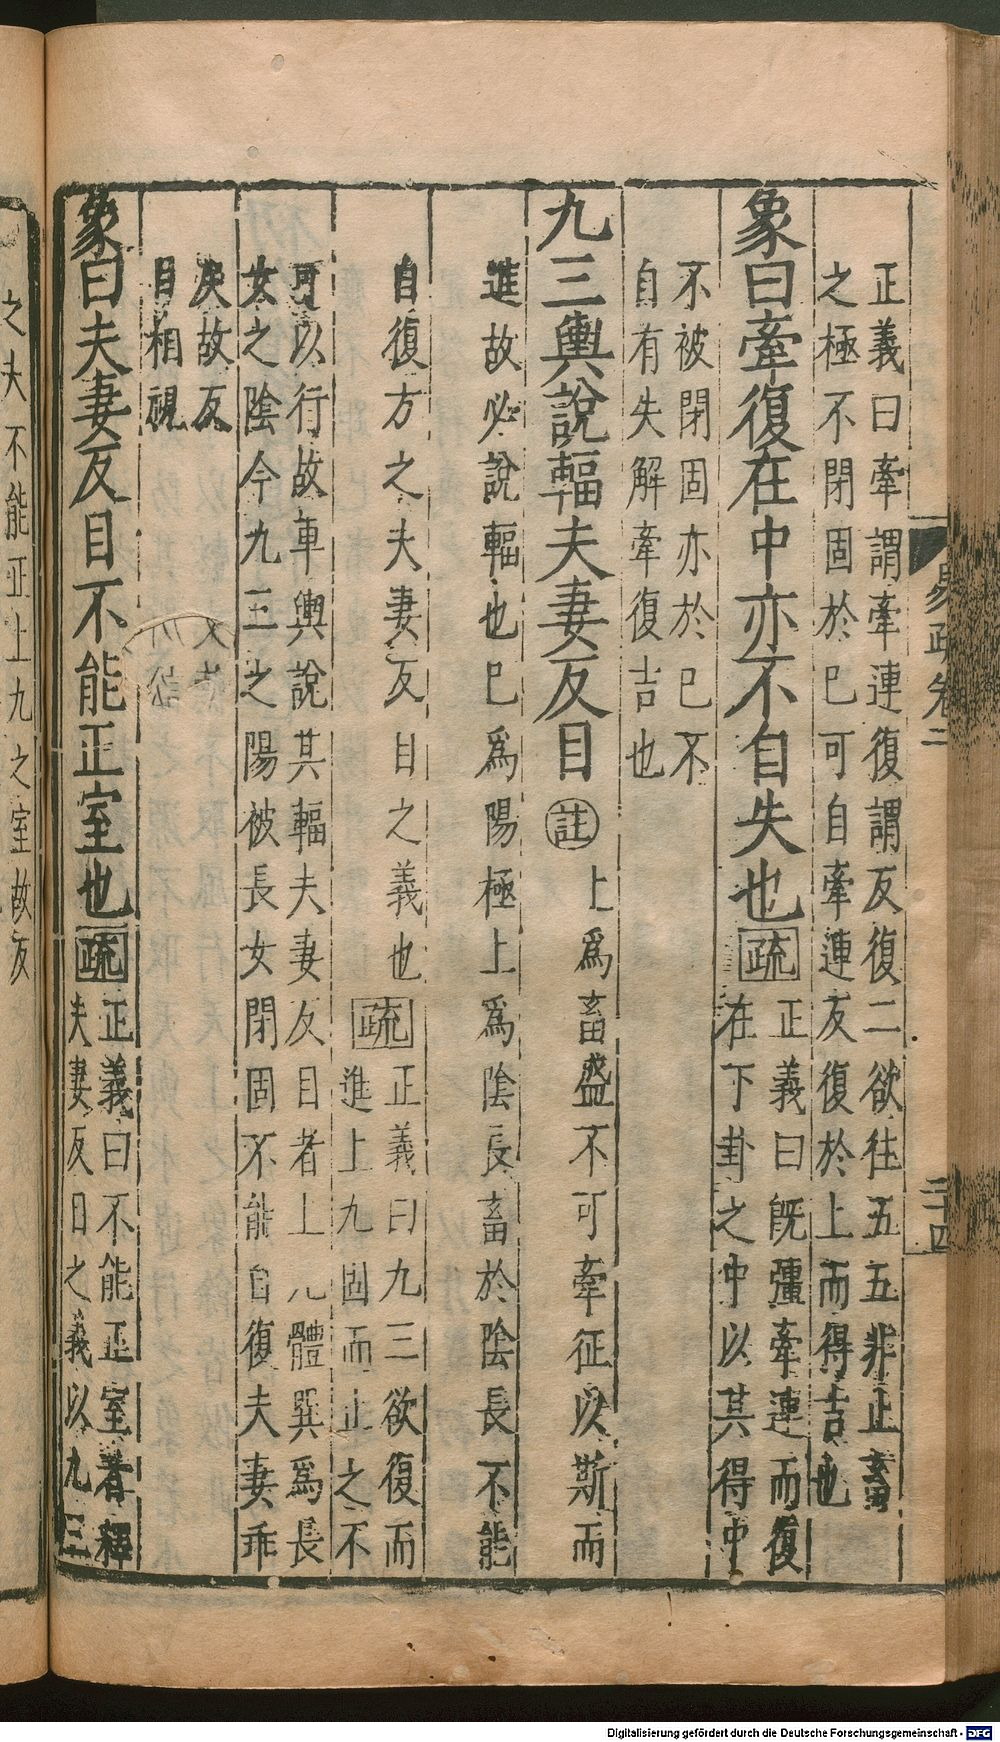 正義曰牽謂牽連復謂反復二欲往五五非正畜
之極不閉固於巳可自牽連反復於上而得吉也
象曰牽復在中亦不自失也疏
正義曰旣彊牽連而復
在下卦之中以其得中
不被閉固亦於巳不
自有失解牽復吉也
九三輿說輻夫妻反目註
上爲畜盛不可牽征以斯而
進故必說輻也巳爲陽極上爲陰長畜於陰長不能
自復方之夫妻反目之義也疏
正義曰九三欲復而
進上九固而止之不
可以行故車輿說其輻夫妻反目者上九體巽爲長
女之陰今九三之陽被長女閉固不能自復夫妻乖
戾故反
目相視
象曰夫妻反目不能正室也疏
正義曰不能正室者釋
夫妻反目之義以九三
之夫不能正上九之室故反
易疏卷二
二十四
Digitalisierung gefördert durch die Deutsche Forschungsgemeinschaft - DFG